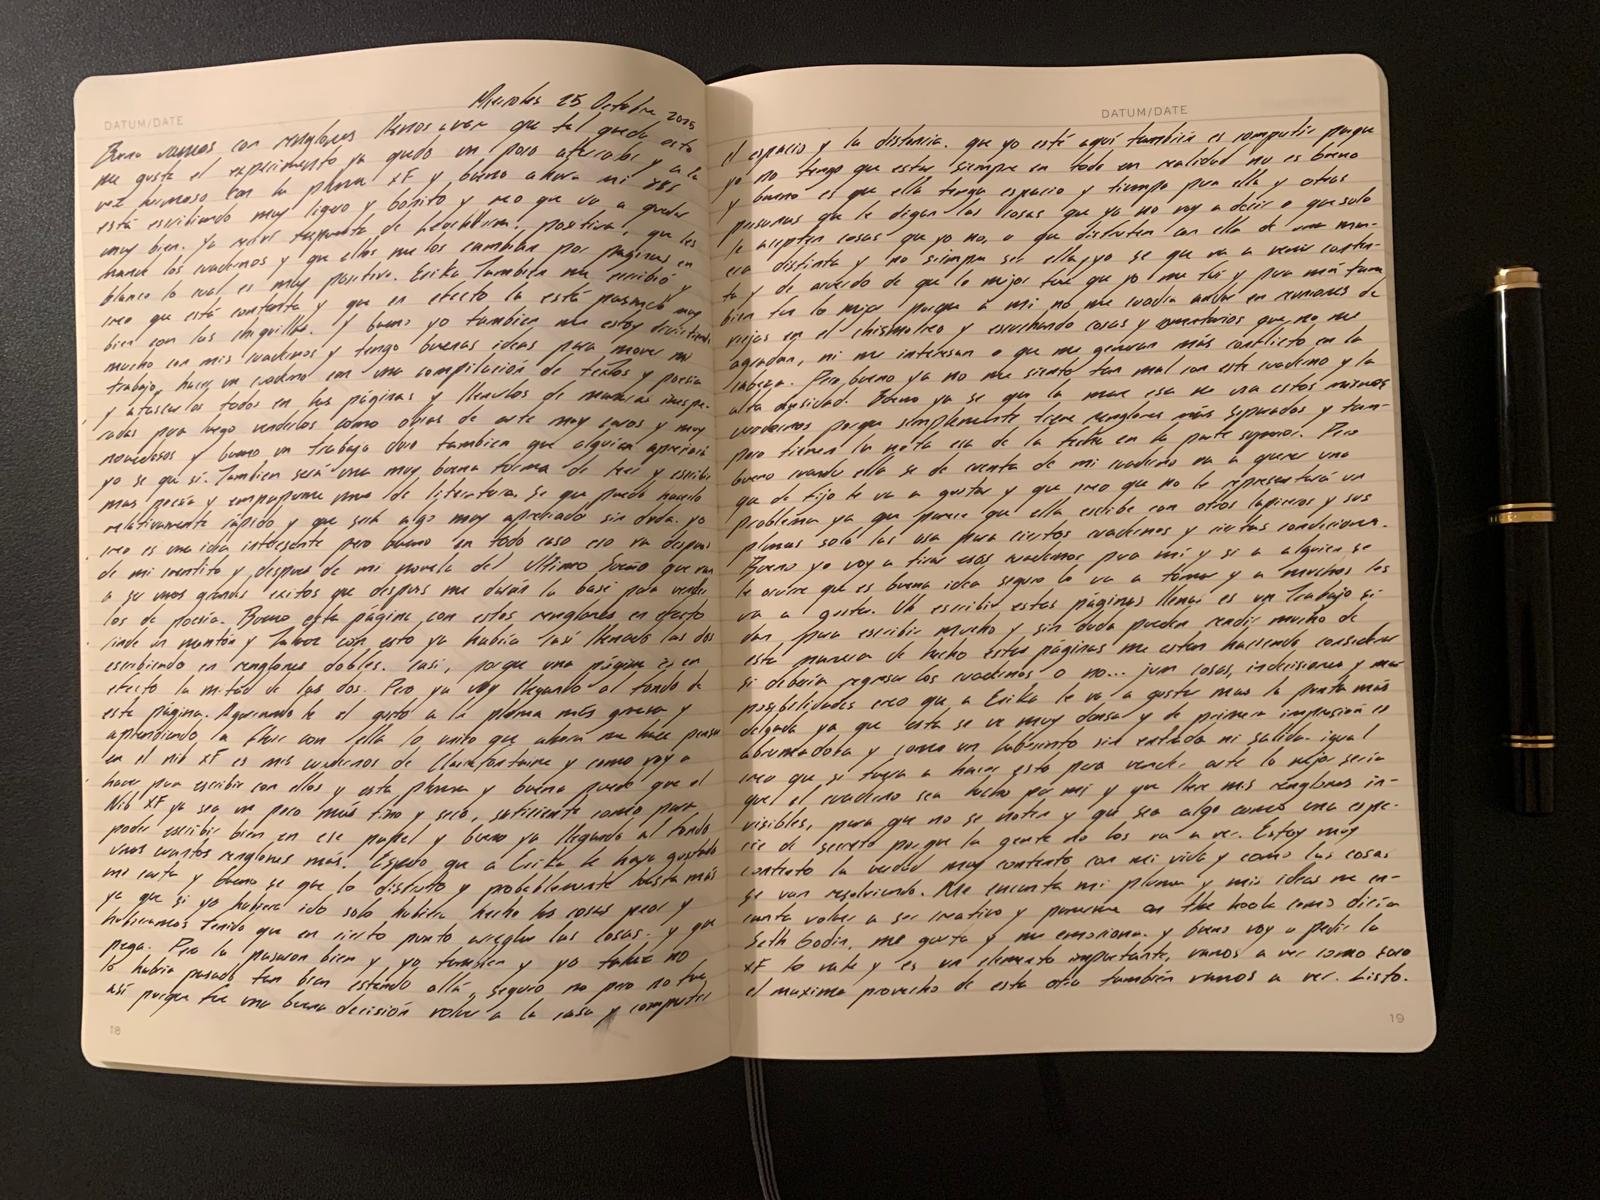 DATUM/DATE
Miercoles 25 Octubre 2025
Bueno vamos con renglones llenos a ver que tal queda esto
me gusta el experimento ya quedo un poco aterrador y a la
vez hermoso con la pluma XF y bueno ahora mi
está escribiendo muy ligero y bonito y creo que va a quedar
muy bien. Ya recibí respuesta de positiva, que les
mande los cuadernos y que ellos me los cambian por páginas en
blanco lo cual es muy positivo. Erika también me escribió y
creo que está contenta y que en efecto la está pasando muy
bien con las chiquillas. Y bueno yo también me estoy divirtiendo
mucho con mis cuadernos y tengo buenas ideas para mover mi
trabajo, hacer un cuaderno con una compilación de textos y poesía
y atascarlos todos en las páginas y llenarlos de maneras inespe-
radas para luego venderlos como obras de arte muy caros y muy
novedosos y bueno, un trabajo duro también que alguien apreciará
yo se que sí. También será una muy buena forma de leer y escribir
mas poesía y empaparme de literatura. Se que puedo hacerlo
relativamente rápido y que será algo muy apreciado sin duda. yo
creo es una idea interesante pero bueno en todo caso eso va después
de mi cuentito y después de mi novela del Ultimo Sueño que van
a ser unos grandes exitos que después me darán la base para vender
los de poesía. Bueno esta página con estos renglones en efecto
rinde un montón y tal vez con esto ya habría casi llenado las dos
escribiendo en renglones dobles. Casi, porque una página es en
efecto la mitad de las dos. Pero ya voy llegando al fondo de
esta página. Agarrando le el gusto a la pluma más gruesa y
aprendiendo a fluir con ella lo unico que ahora me hace pensar
en el nib XF es mis cuadernos de Clairefontaine y como voy a
hacer para escribir con ellos y esta pluma y bueno puede que el
Nib XF ya sea un poco más fino y seco, suficiente como para
poder escribir bien en ese papel y bueno ya llegando al fondo
unos cuantos renglones más. Espero que a Erika le haya gustado
mi carta y bueno se que lo disfruto y probablemente hasta más
ya que si yo hubiera ido solo habría hecho las cosas peor y
hubieramos tenido que en cierto punto arreglar las cosas. y que
pega. Pero la pasaron bien y yo también y yo talvez no
lo habría pasado tan bien estando allá, seguro no pero no fue
así porque fue una buena decisión volver a la casa y compartir
18
DATUM/DATE
el espacio y la distancia. que yo esté aquí también es compartir porque
yo no tengo que estar siempre en todo en realidad no es bueno
y bueno es que ella tenga espacio y tiempo para ella y otras
personas que le digan las cosas que yo no voy a decir o que solo
le acepten cosas que yo no, o que disfruten con ella de una man-
era distinta y no siempre ser ella, yo se que va a venir conten-
ta y de acuerdo de que lo mejor fue que yo me fui y para mi tam
bien fue lo mejor porque a mi no me cuadra andar en reuniones de
viejas en el chismoleo y escuchando cosas y comentarios que no me
agradan, ni me interesan o que me generan más conflicto en la
cabeza. Pero bueno ya no me siento tan mal con este cuaderno y la
alta densidad. Bueno ya se que la mae esa no usa estos mismos
cuadernos porque simplemente tiene renglones más separados y tam-
poco tienen la nota esa de la fecha en la parte superior. Pero
bueno cuando ella se de cuenta de mi cuaderno va a querer uno
que de fijo le va a gustar y que creo que no le representará un
problema ya que parece que ella escribe con otros lapiceros y sus
plumas solo las usa para ciertos cuadernos y ciertas condiciones.
Bueno yo voy a tirar esos cuadernos para mí y si a alguien se
le ocurre que es buena idea seguro lo va a tomar y a muchos les
va a gustar. Uf escribir estas páginas llenas es un trabajo si
dan para escribir mucho y sin duda pueden rendir mucho de
esta manera de hecho estas páginas me estan haciendo considerar
si debería regresar los cuadernos o no... jum cosas, indecisiones y mas
posibilidades creo que a Erika le va a gustar mas la punta más
delgada ya que esta se ve muy densa y de primera impresión es
abrumadora y como un laberinto sin entrada ni salida. igual
creo que si fuera a hacer esto para vender arte lo mejor sería
que el cuaderno sea hecho por mi y que lleve mis renglones in-
visibles, para que no se noten y que sea algo como una espe-
cie de secreto porque la gente no los va a ver. Estoy muy
contento la verdad muy contento con mi vida y como las cosas
se van resolviendo. Me encanta mi pluma y mis ideas me en-
canta volver a ser creativo y ponerme on the hook como diría
Seth Godin, me gusta y me emociona. y bueno voy a pedir la
XF lo vale y es un elemento importante, vamos a ver como saco
el maximo provecho de esta otra también vamos a ver. Listo.
19